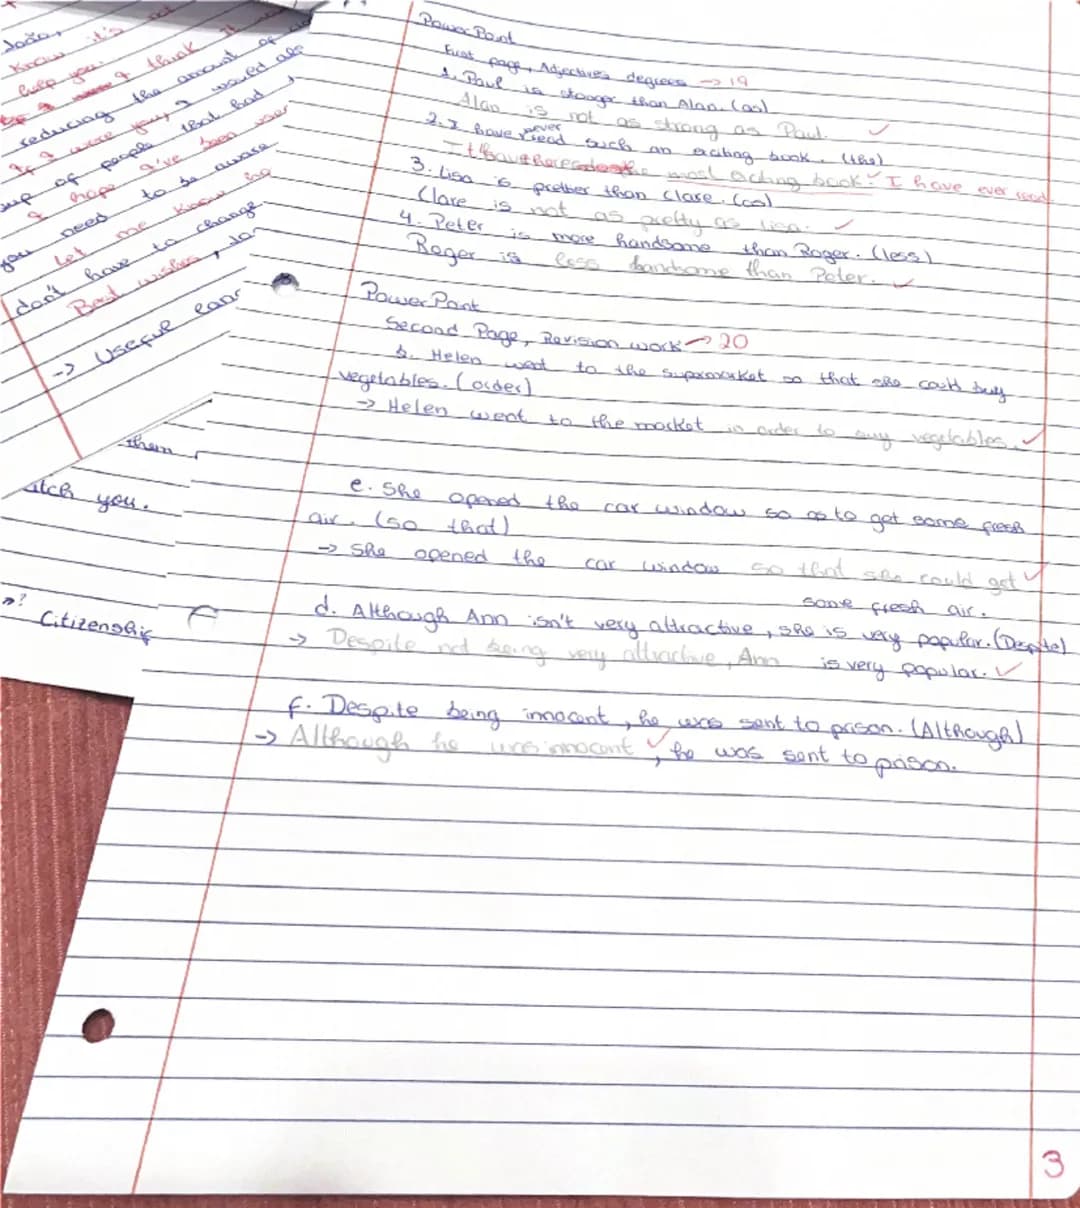 João,
Know it's not
help you.
I think it
reducing the amount of
If I were you, I would also
of people that had
I hope I've been
you need to be aware
Let me know
don't have to change
Best wishes, Jo
-> Useful
them
atch you.
Citizenship
Power Point
First page, Adjectives degrees -> 19
1. Paul is stronger than Alan. (as)
Alan is not as strong as Paul. ✓
2. I have never read such an exciting book. (the)
the most exciting book I have ever read.
3. Lisa is prettier than Clare. (as)
Clare is not as pretty as Lisa. ✓
4. Peter is more handsome than Roger. (less)
Roger is less handsome than Peter. ✓
PowerPoint
Second Page, Revision work -> 20
b. Helen went to the supermarket so that she could buy
vegetables. (order)
-> Helen went to the market in order to buy vegetables. ✓
e. She opened the car window so as to get some fresh
air. (so that)
-> She opened the car window so that she could get ✓
some fresh air.
d. Although Ann isn't very attractive, she is very popular. (Despite)
-> Despite not being very attractive, Ann is very popular. ✓
f. Despite being innocent, he was sent to prison. (Although)
-> Although he was innocent ✓, he was sent to prison.
3